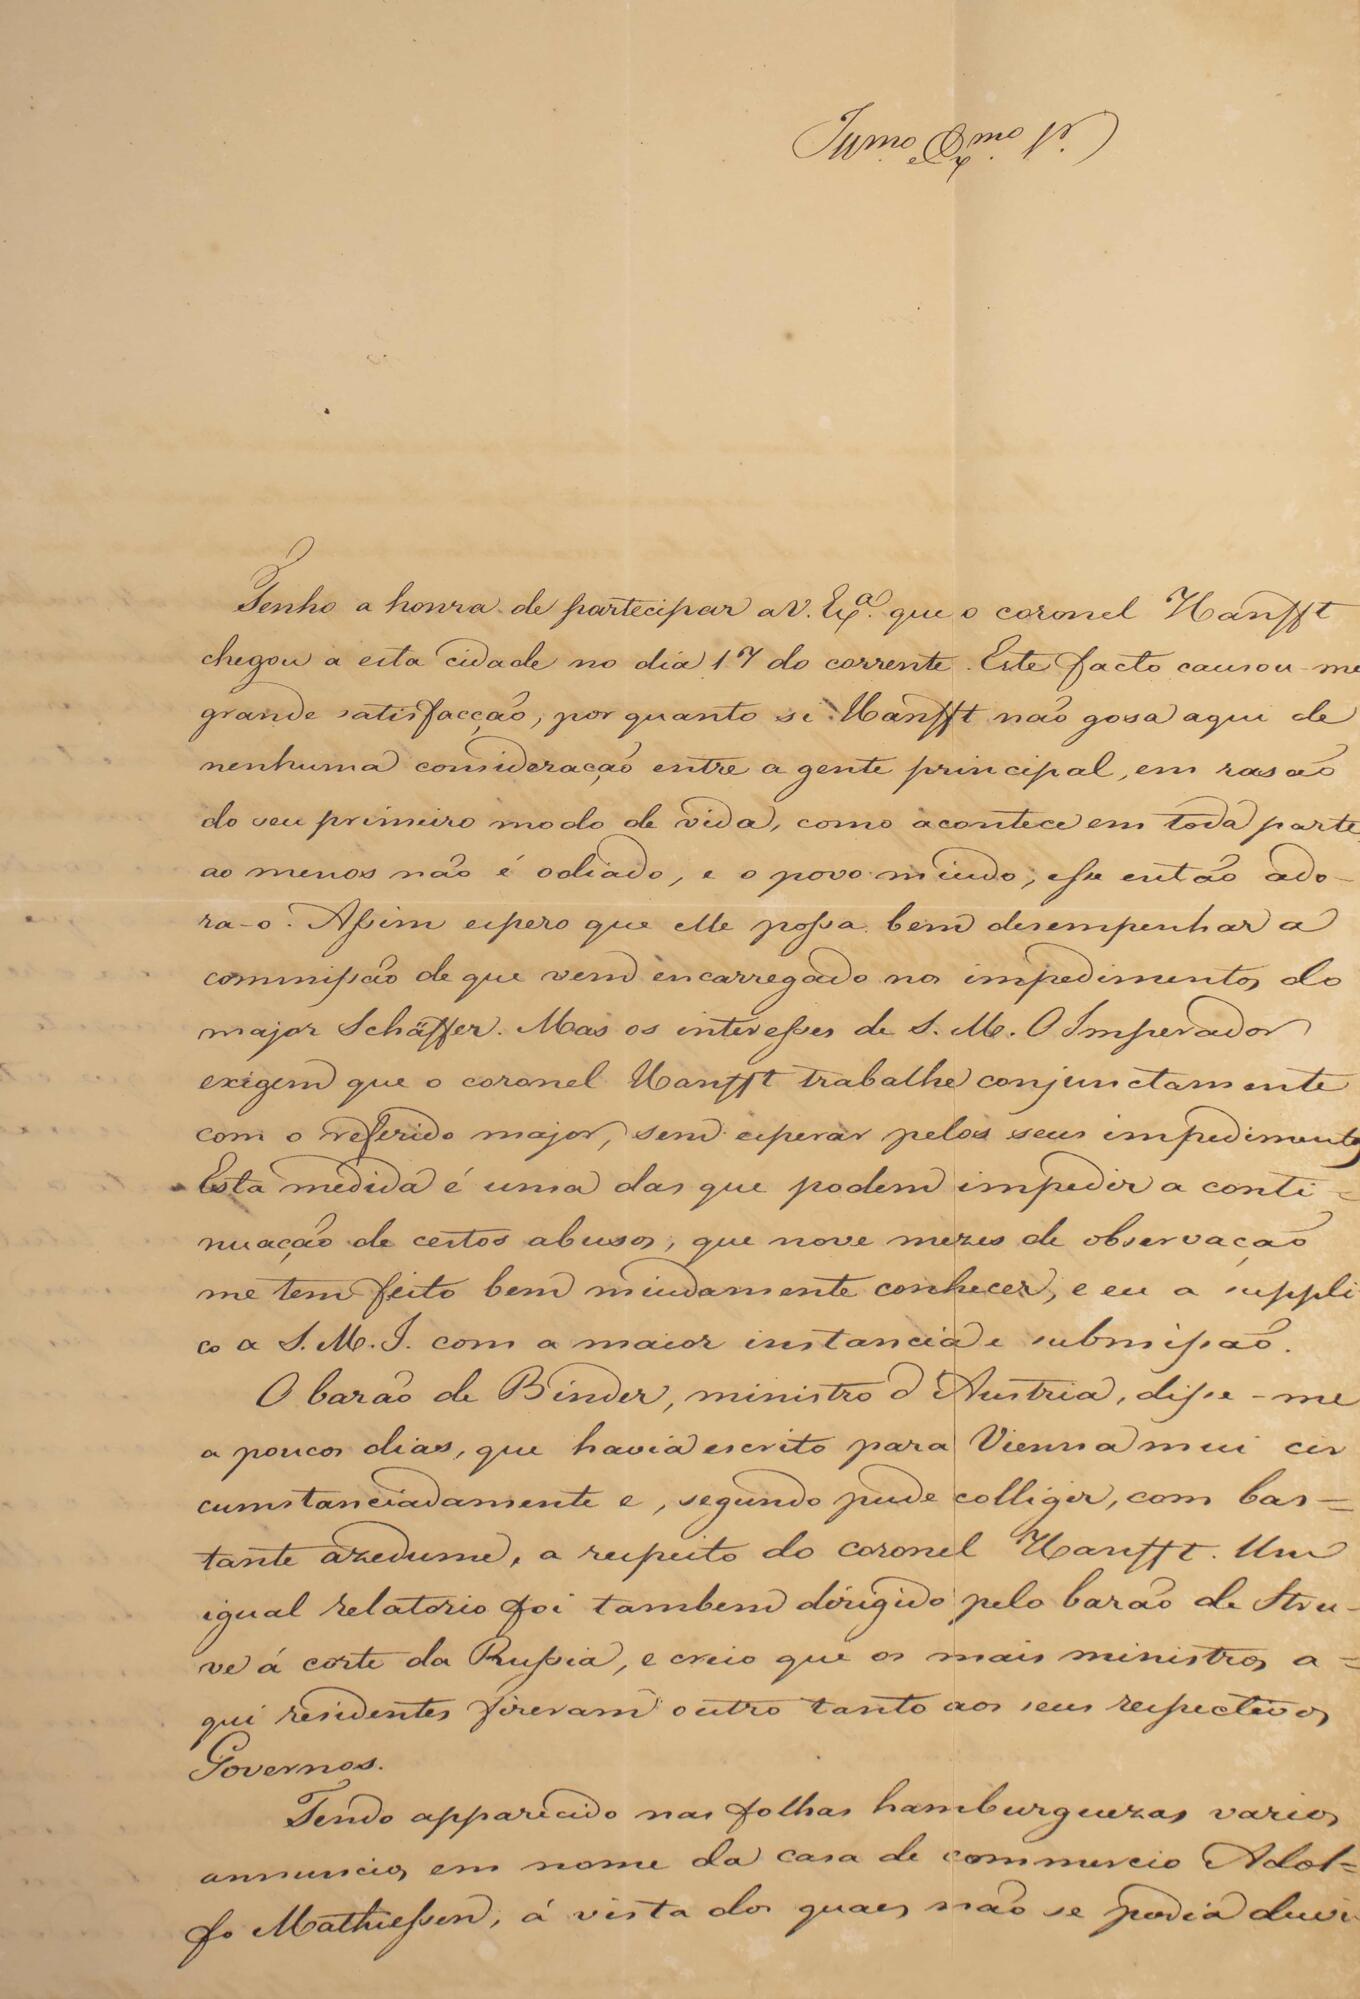 Illmo e Exmo Sr.
Tenho a honra de partecipar a V. Exa. que o coronel Hanfft
chegou a esta cidade no dia 17 do corrente. Este facto causou-me
grande satisfacção, por quanto se Hanfft não gosa aqui de
nenhuma consideração entre a gente principal, em rasão
do seu primeiro modo de vida, como acontece em toda parte,
ao menos não é odiado, e o povo miudo, esse então ado-
ra-o. Assim espero que elle possa bem desempenhar a
commissão de que vem encarregado nos impedimentos do
major Schäffer. Mas os interesses de S. M. O Imperador
exigem que o coronel Hanfft trabalhe conjunctamente
com o referido major, sem esperar pelos seus impedimentos
Esta medida é uma das que podem impedir a conti=
nuação de certos abusos, que nove mezes de observação
me tem feito bem miudamente conhecer, e eu a suppli
co a S. M. I. com a maior instancia e submissão.
O barão de Binder, ministro d'Austria, disse-me
a poucos dias, que havia escrito para Vienna mui cir
cumstanciadamente e, segundo pude colliger, com bas=
tante azedume, a respeito do coronel Hanfft. Um
igual relatorio foi tambem dirigido pelo barão de Stru-
ve á corte da Russia, e creio que os mais ministros a=
qui residentes fizeram outro tanto aos seus respectivos
Governos.
Tendo apparecido nas folhas hamburguezas varios
annuncios em nome da casa de commercio Adol=
fo Mathiessen, á vista dos quaes não se podia duvi